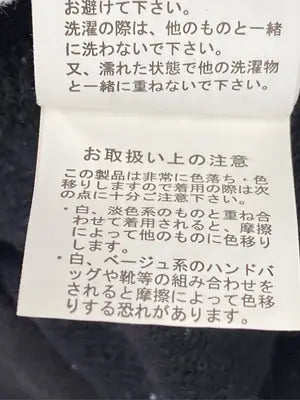 お避けて下さい。
洗濯の際は、他のものと一緒
に洗わないで下さい。
又、濡れた状態で他の洗濯物
と一緒に重ねないで下さい。
お取扱い上の注意
この製品は非常に色落ち・色
移りしますので着用の際は次
の点に十分ご注意下さい。
・白、淡色系のものと重ね合
わせて着用されると、摩擦
によって他のものに色移り
します。
・白、ベージュ系のハンドバ
ッグや靴等の組み合わせを
されると摩擦によって色移
りする恐れがあります。